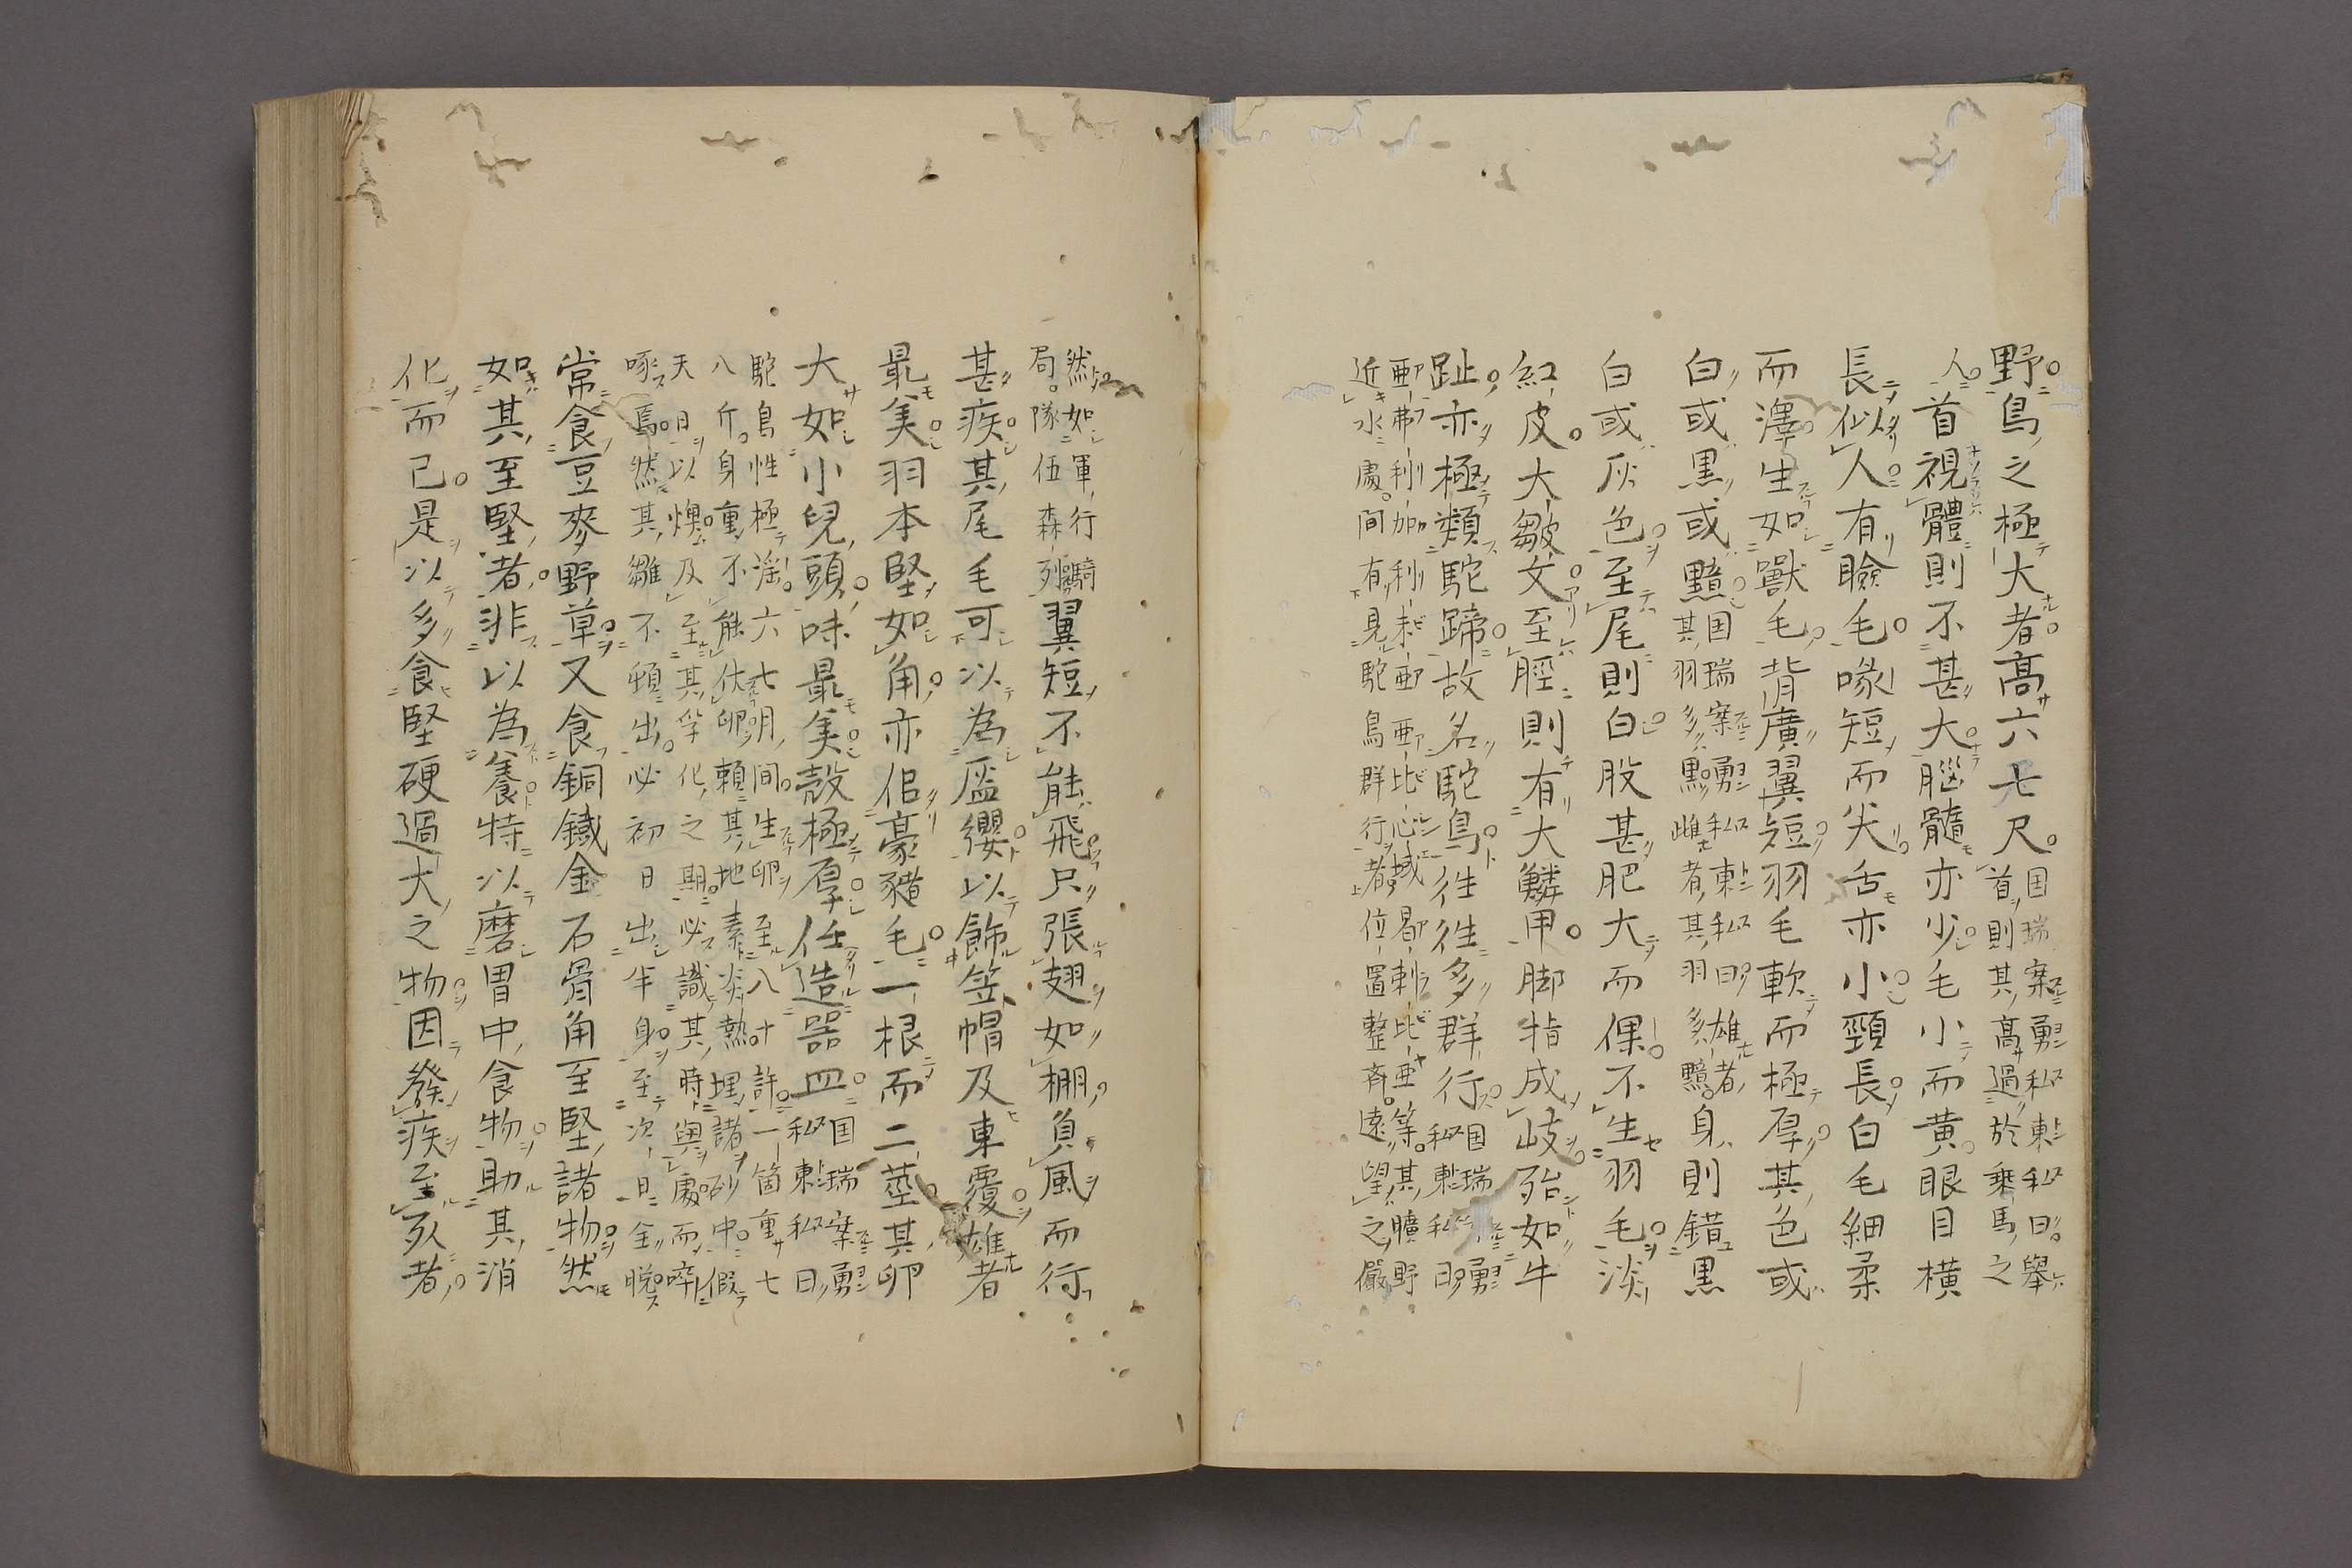 野鳥之極大者高六七尺国瑞案勇私東私曰舉首則其高過於乗馬之
人首視體則不甚大腦髓亦少毛小而黄眼目横
長似人有瞼毛喙短而尖舌亦小頸長白毛細柔
而澤生如獸毛背廣翼短羽毛軟而極厚其色或
白或黒或黯国瑞案勇私東私曰雄者其羽多黒雌者其羽多黯身則錯黒
白或灰色至尾則白股甚肥大而倮不生羽毛淡
紅皮大皺文至脛則有大鱗甲脚指成岐殆如牛
趾亦極類駝蹄故名駝鳥徃徃多群行国瑞案勇私東私曰
亜弗利加利未亜亜比心域曷剌比亜等其曠野
近水處間有見駝鳥群行者位置整斉遠望之儼
然如軍行騎局隊伍森列翼短不能飛尺張翅如棚負風而行
甚疾其尾毛可以為盔纓以飾笠帽及車覆雄者
最美羽本堅如角亦佀豪豬毛一根而二莖其卵
大如小兒頭味最美殻極厚任造器皿国瑞案勇私東私曰
駝鳥性極淫六七月間生卵至八十許一箇重七
八斤身重不能伏卵頼其地素炎熱埋諸砂中假
天日以燠及至其孚化之期必識其時與處而啐
啄焉然其雛不頓出必初日出半身至次日全脱
常食豆麥野草又食銅鐵金石骨角至堅諸物然
如其至堅者非以為養特以磨胃中食物助其消
化而已是以多食堅硬過大之物因發疾至死者